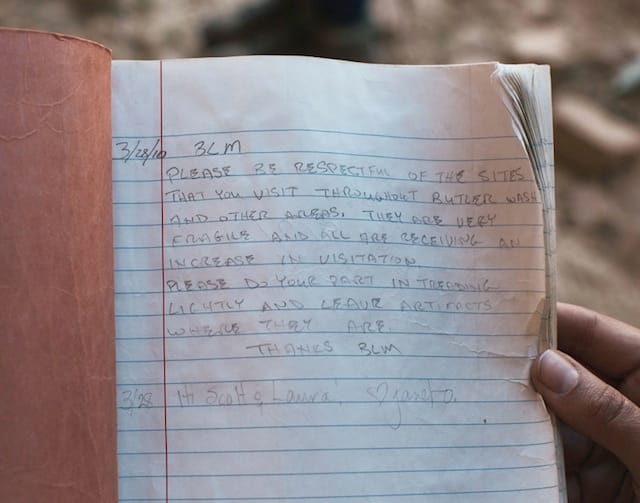 3/28/10 BLM
PLEASE BE RESPECTFUL OF THE SITES
THAT YOU VISIT THROUGHOUT BUTLER WASH
AND OTHER AREAS. THEY ARE VERY
FRAGILE AND ALL ARE RECEIVING AN
INCREASE IN VISITATION
PLEASE DO YOUR PART IN TREADING
LIGHTLY AND LEAVE ARTIFACTS
WHERE THEY ARE.
THANKS BLM
3/28 Hi Scott & Laura!